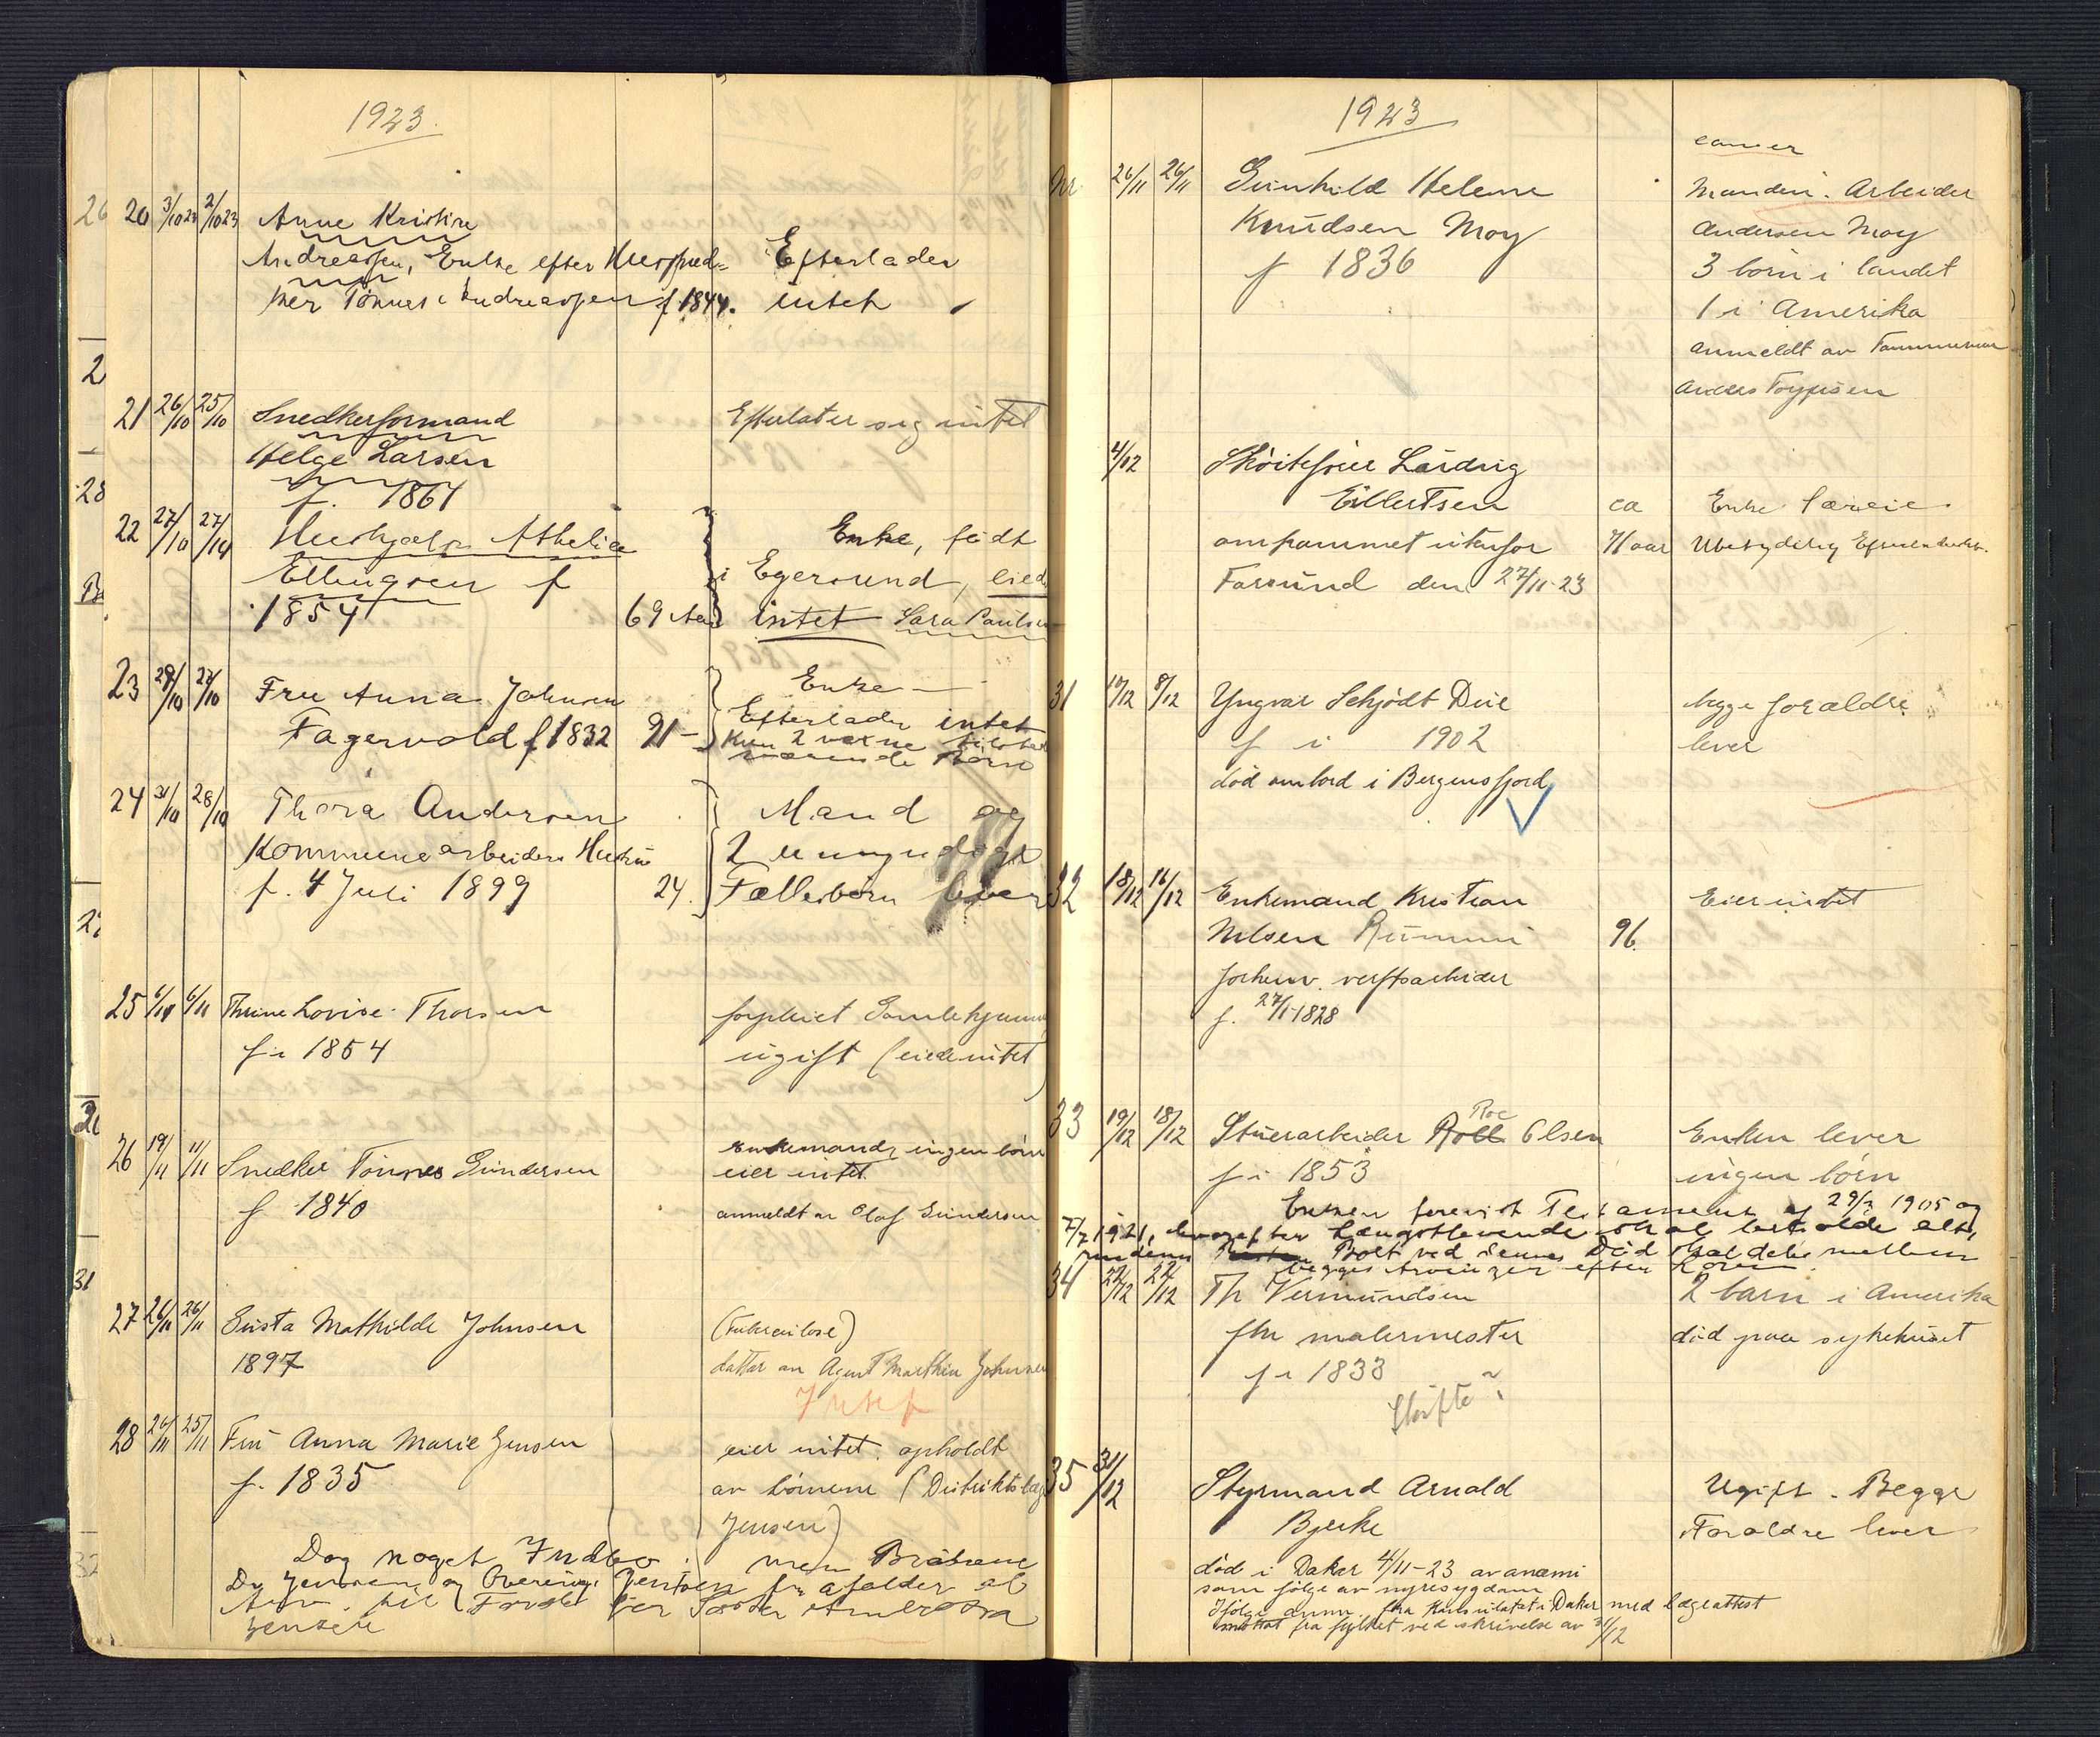 1923.
20 3/10 23 2/10 23 Anne Kristine
Andreassen, Enke efter Efterlader
Tønnes Andreassen f 1844. intet
21 26/10 25/10 Snedkerformand Efterlater sig intet
Helge Larsen
f. 1861
22 27/10 27/10 Athelia Enke, født
Ellingsen f i Egersund, eied
1854 69 Aar intet Sara Paulsen
23 29/10 27/10 Fru Anna Johnsen Enke —
Fagervold f 1832 91 – Efterlader intet
Kun 2 voxne
Børn
24 31/10 28/10 Thora Andersen Mand og
Kommunearbeiders Hustru 2 umyndige
f. 4 Juli 1899 24. Fællesbørn lever
25 6/11 6/11 Thrine Lovise Thorsen forpleiet Gamlehjemmet
f i 1854 ugift (eiede intet)
26 19/11 11/11 Snedker Tønnes Gundersen Enkemand, ingen børn
eier intet
f 1840 anmeldt av Olaf Gundersen
27 26/11 26/11 Gusta Mathilde Johnsen (Tuberkulose)
1897 datter av Agent Mathin Johnsen
Intet
28 26/11 25/11 Fru Anna Marie Jensen eier intet. opholdt
f. 1835 av børnene (Distriktslæge
Jensen)
Dog noget Indbo, men Brødrene
Jensen
1923
cancer
Nr. 26/11 26/11 Gunhild Helene Manden: Arbeider
Knudsen Moy Andersen Moy
f 1836 3 børn i landet
1 i Amerika
anmeldt av Tømmermand
Anders Torjusen
4/12 Skøitefører Ludvig
Eilertsen ca Enke
omkommet utenfor 71 aar Ubetydelig
Farsund den 27/11-23
31 10/12 8/12 Yngvar Schjødt Due begge forældre
f i 1902 lever
død ombord i Bergensfjord
32 18/12 16/12 Enkemand Kristian Eier intet
Nilsen 96.
forhenv. verftsarbeider
f. 27/1-1828
33 19/12 18/12 Roe
Stuerarbeider Olsen Enken lever
f i 1853 ingen børn
Enken forevist Testament af 29/3 1905 og
7/7 1921, hvorefter Længstlevende skal beholde alt,
medens Boet ved dennes Død skal deles mellem
begges Arvinger efter Loven.
34 22/12 22/12 Th Vermundsen 2 barn i Amerika
fhv malermester død paa sykehuset
f i 1833
Skifte?
35 31/12 Styrmand Arnold Ugift. Begge
Bjerke Forældre lever
død i Dakar 4/11-23 av anæmi
som følge av nyresygdom
Ifølge anm. fra Konsulatet i Dakar med lægeattest
mottat fra fylket ved skrivelse av 31/12